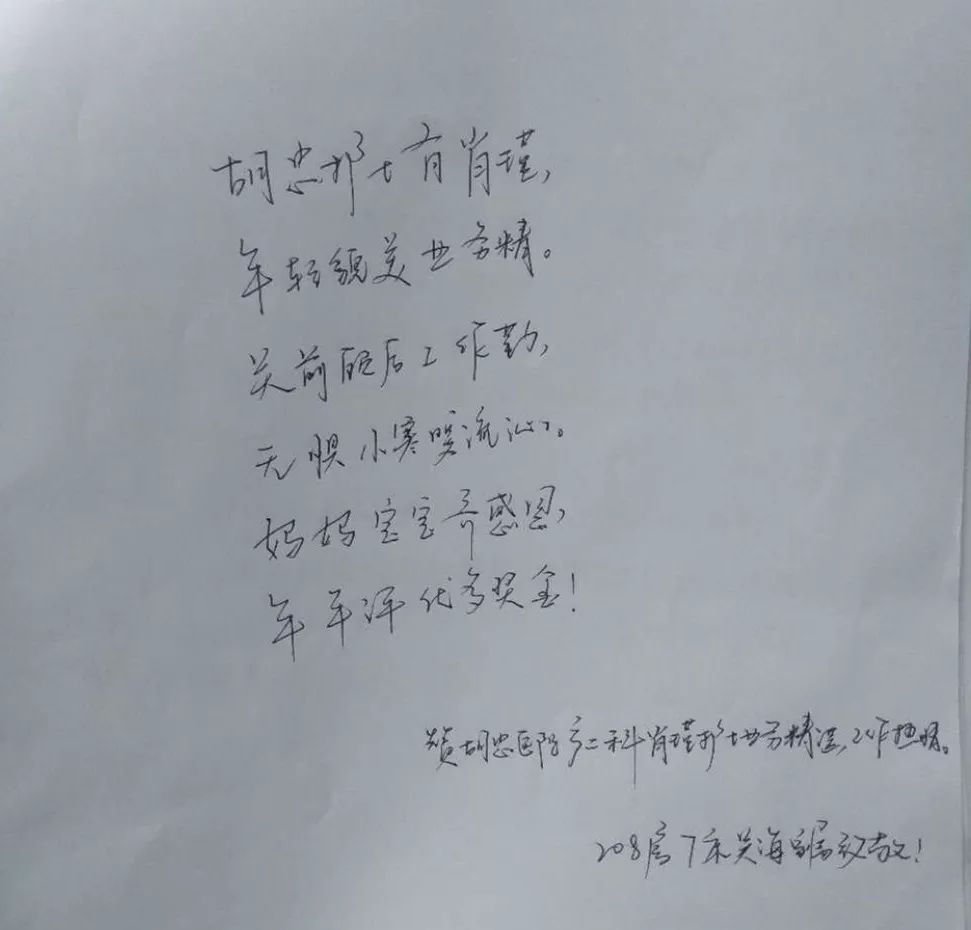 胡忠护士有肖瑾,
年轻貌美业务精。
关前顾后工作勤,
无惧小寒暖流沁。
妈妈宝宝齐感恩,
年年评优多奖金!
赞胡忠医院产二科肖瑾护士业务精湛,工作热情。
208房7床吴海宾敬!